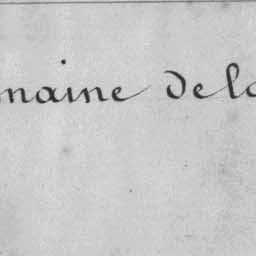 maine de la